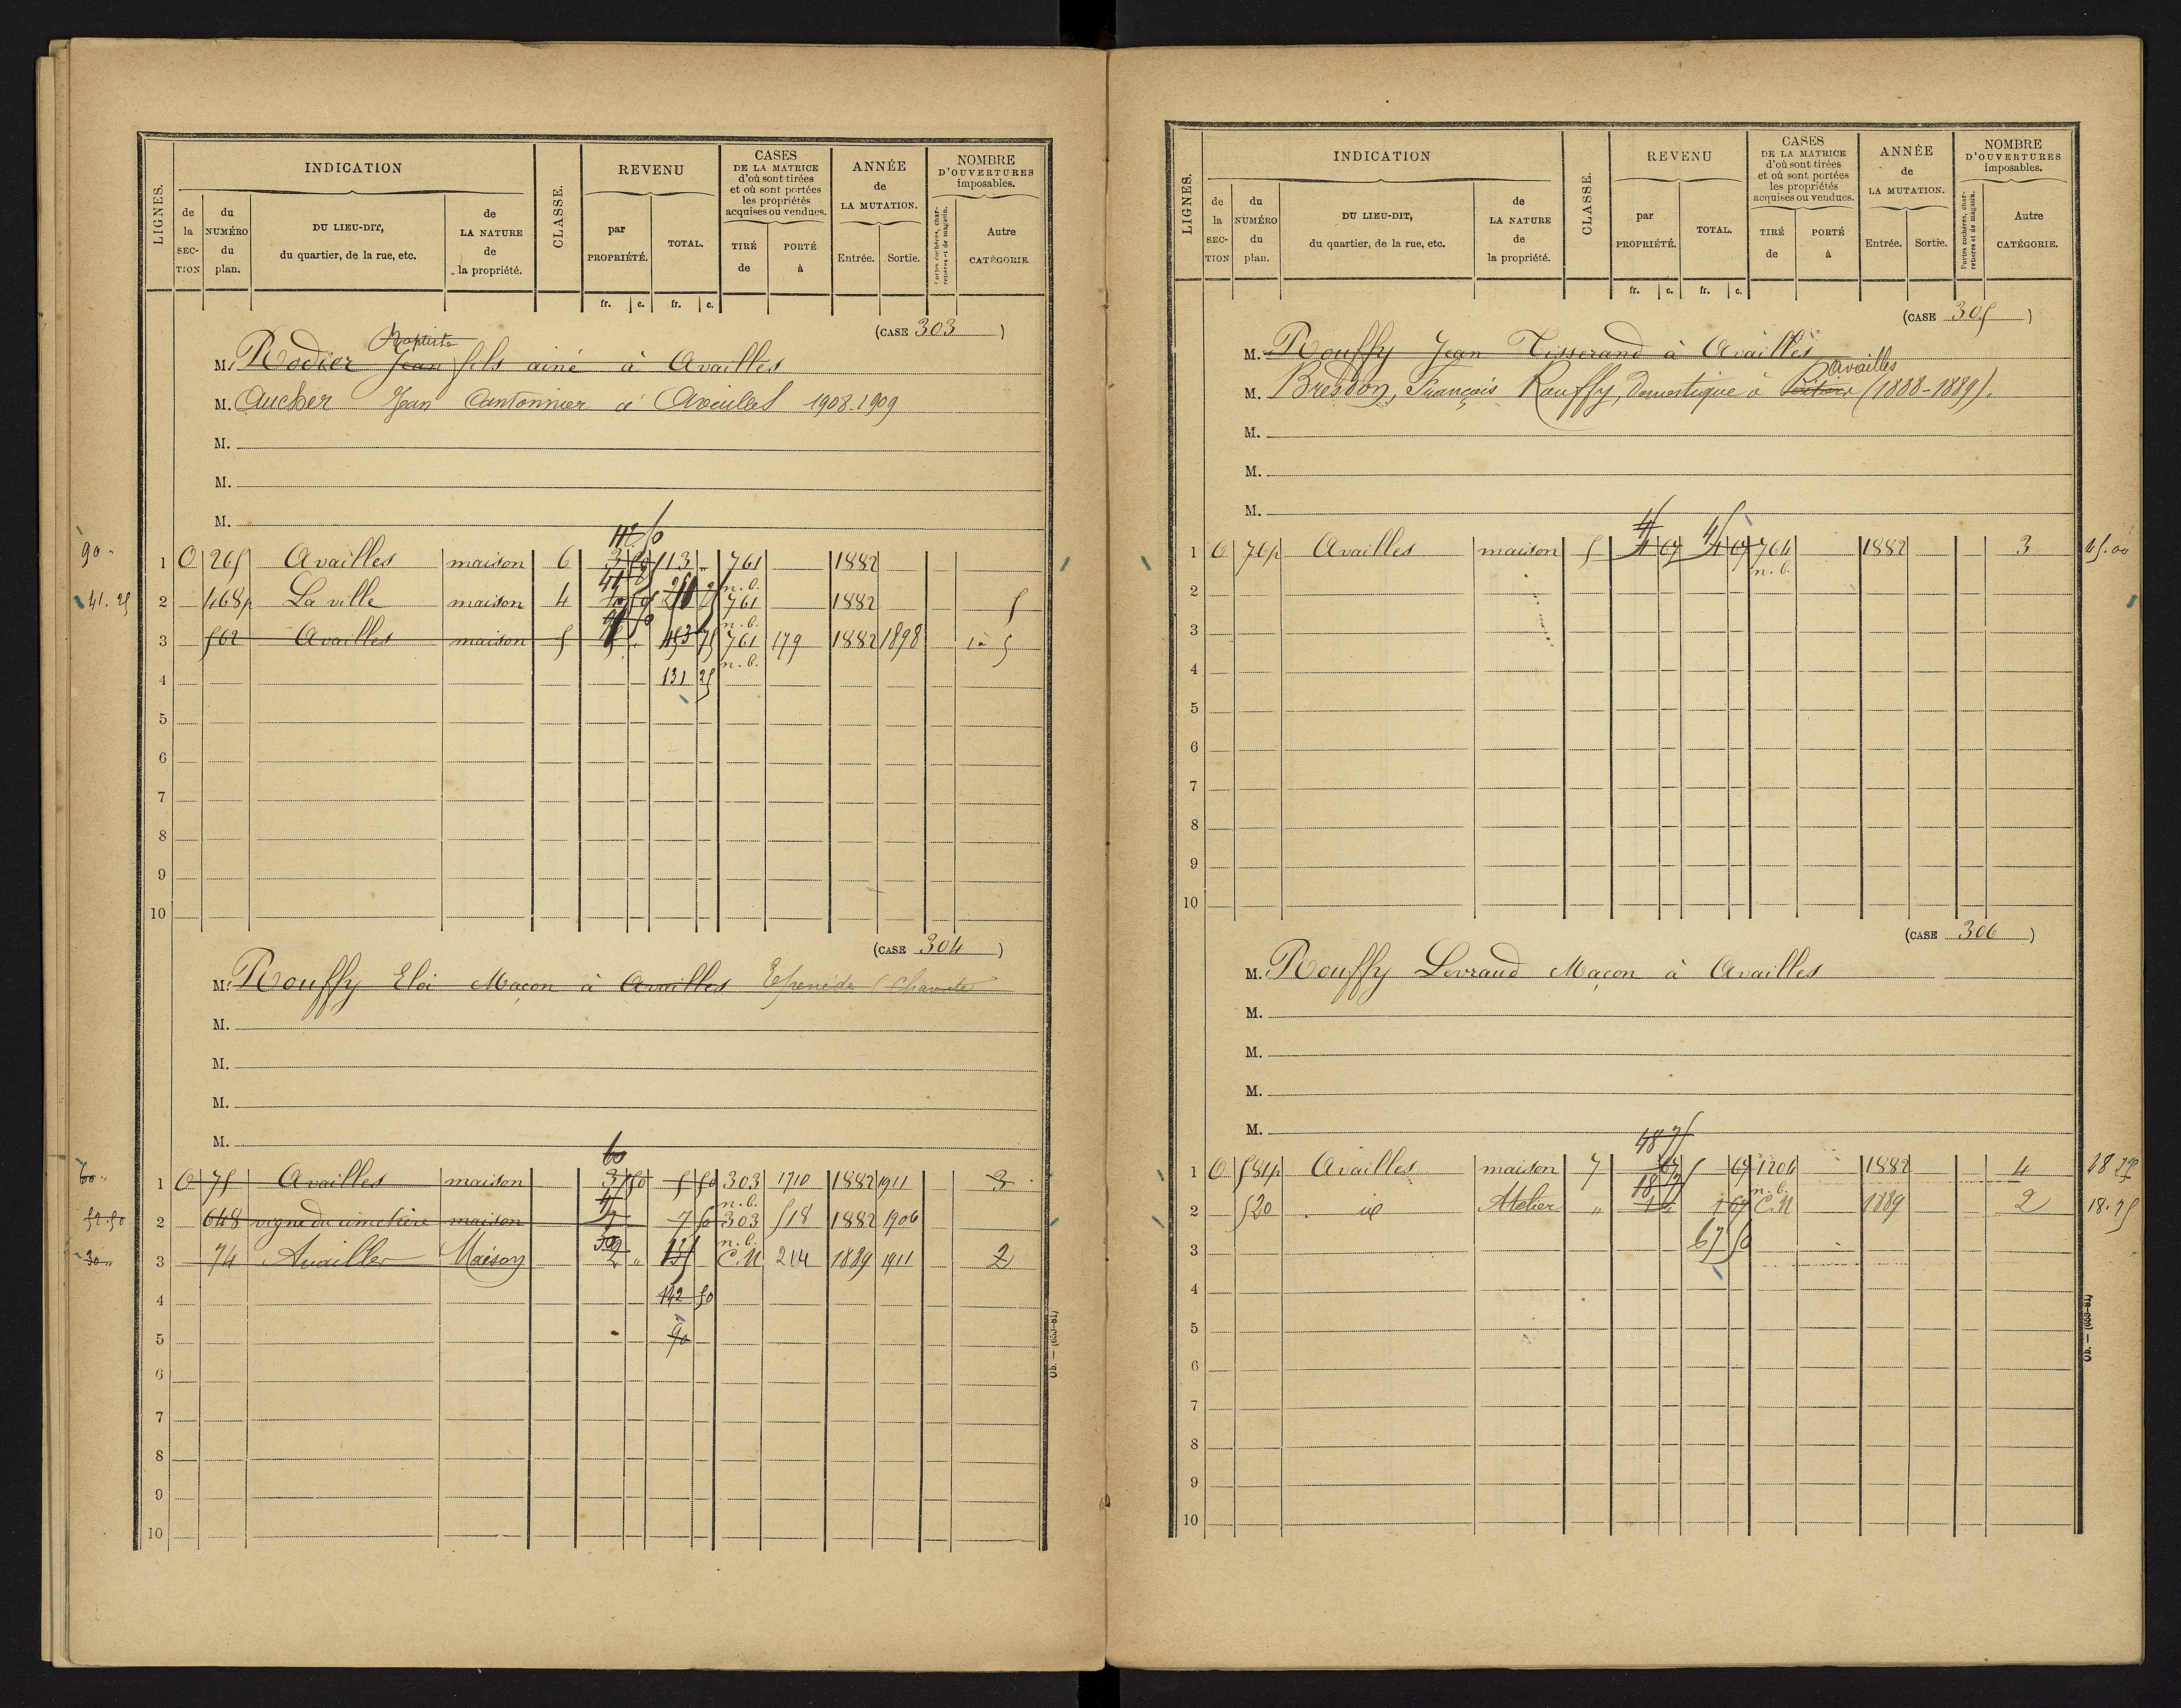 LIGNES.
INDICATION
CLASSE.
REVENU
CASES
DE LA MATRICE
d'où sont tirées
et où sont portées
les propriétés
acquises ou vendues.
ANNÉE
de
LA MUTATION.
NOMBRE
D'OUVERTURES
imposables.
de la SECTION
du NUMÉRO du plan.
DU LIEU-DIT,
du quartier, de la rue, etc.
de LA NATURE de la propriété.
par PROPRIÉTÉ.
TOTAL.
TIRÉ de
PORTÉ à
Entrée.
Sortie.
Portes cochères, charretières et de magasin.
Autre CATÉGORIE.
fr. c. fr. c.
(CASE 303)
Baptiste
M. Rodier Jean fils ainé à Availles
M. Aucher Jean Cantonnier à Availles 1908-1909
M.
M.
M.
112 50
90 "
1 O 265 Availles maison 6 113 " 761 1882
n.b.
41.25 2 468p La ville maison 4 761 1882 5
n.b.
3 562 Availles maison 5 761 179 1882 1898 5
n.b.
4 131 25
5
6
7
8
9
10
(CASE 304)
M. Rouffy Eloi Maçon à Availles Epenède (Charente
M.
M.
M.
M.
60
60 " 1 O 75 Availles maison 3 50 5 50 303 1710 1882 1911 3
n.b.
52.50 2 648 vigne du cimetière maison 7 50 303 518 1882 1906
n.b.
30 " 3 74 Availles Maison 2 " C.N 214 1889 1911 2
4 142 50
5 90
6
7
8
9
10
Ob. — (653-81)
LIGNES.
INDICATION
CLASSE.
REVENU
CASES
DE LA MATRICE
d'où sont tirées
et où sont portées
les propriétés
acquises ou vendues.
ANNÉE
de
LA MUTATION.
NOMBRE
D'OUVERTURES
imposables.
de la SECTION
du NUMÉRO du plan.
DU LIEU-DIT,
du quartier, de la rue, etc.
de LA NATURE de la propriété.
par PROPRIÉTÉ.
TOTAL.
TIRÉ de
PORTÉ à
Entrée.
Sortie.
Portes cochères, charretières et de magasin.
Autre CATÉGORIE.
fr. c. fr. c.
(CASE 305)
M. Rouffy Jean Tisserand à Availles
Availles
M. Bresdon, François Rouffy, Domestique à (1888-1889).
M.
M.
M.
45 45
1 O 76p Availles maison 5 4 67 4 67 764 1882 3 45.00
n.b.
2
3
4
5
6
7
8
9
10
(CASE 306)
M. Rouffy Levraud Maçon à Availles
M.
M.
M.
M.
48 75
1 O 581p Availles maison 7 67 67 1204 1882 4
n.b.
18 75
2 520 id Atelier " C.N 1889 2 18.75
3 67 50
4
5
6
7
8
9
10
Ob. — (653-81)